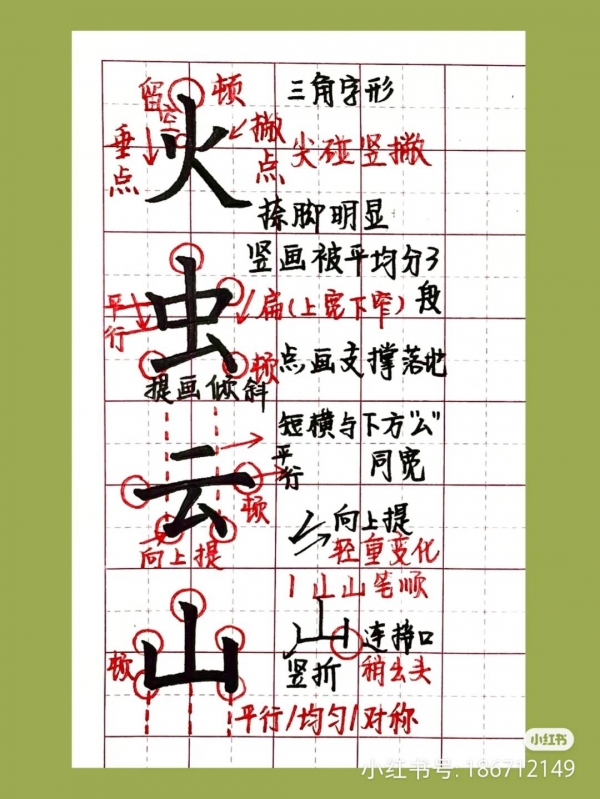 留空 顿 三角字形
垂点
火
撇点 尖碰竖撇
捺脚明显
竖画被平均分3段
平行
虫
扁(上宽下窄)
顿 点画支撑落地
提画倾斜
短横与下方"厶"
同宽
平行
云
顿
向上提
向上提
轻重变化
丨 山 笔顺
山
顿
竖折
连接口
稍出头
平行/均匀/对称
小红书
小红书号: 186712149